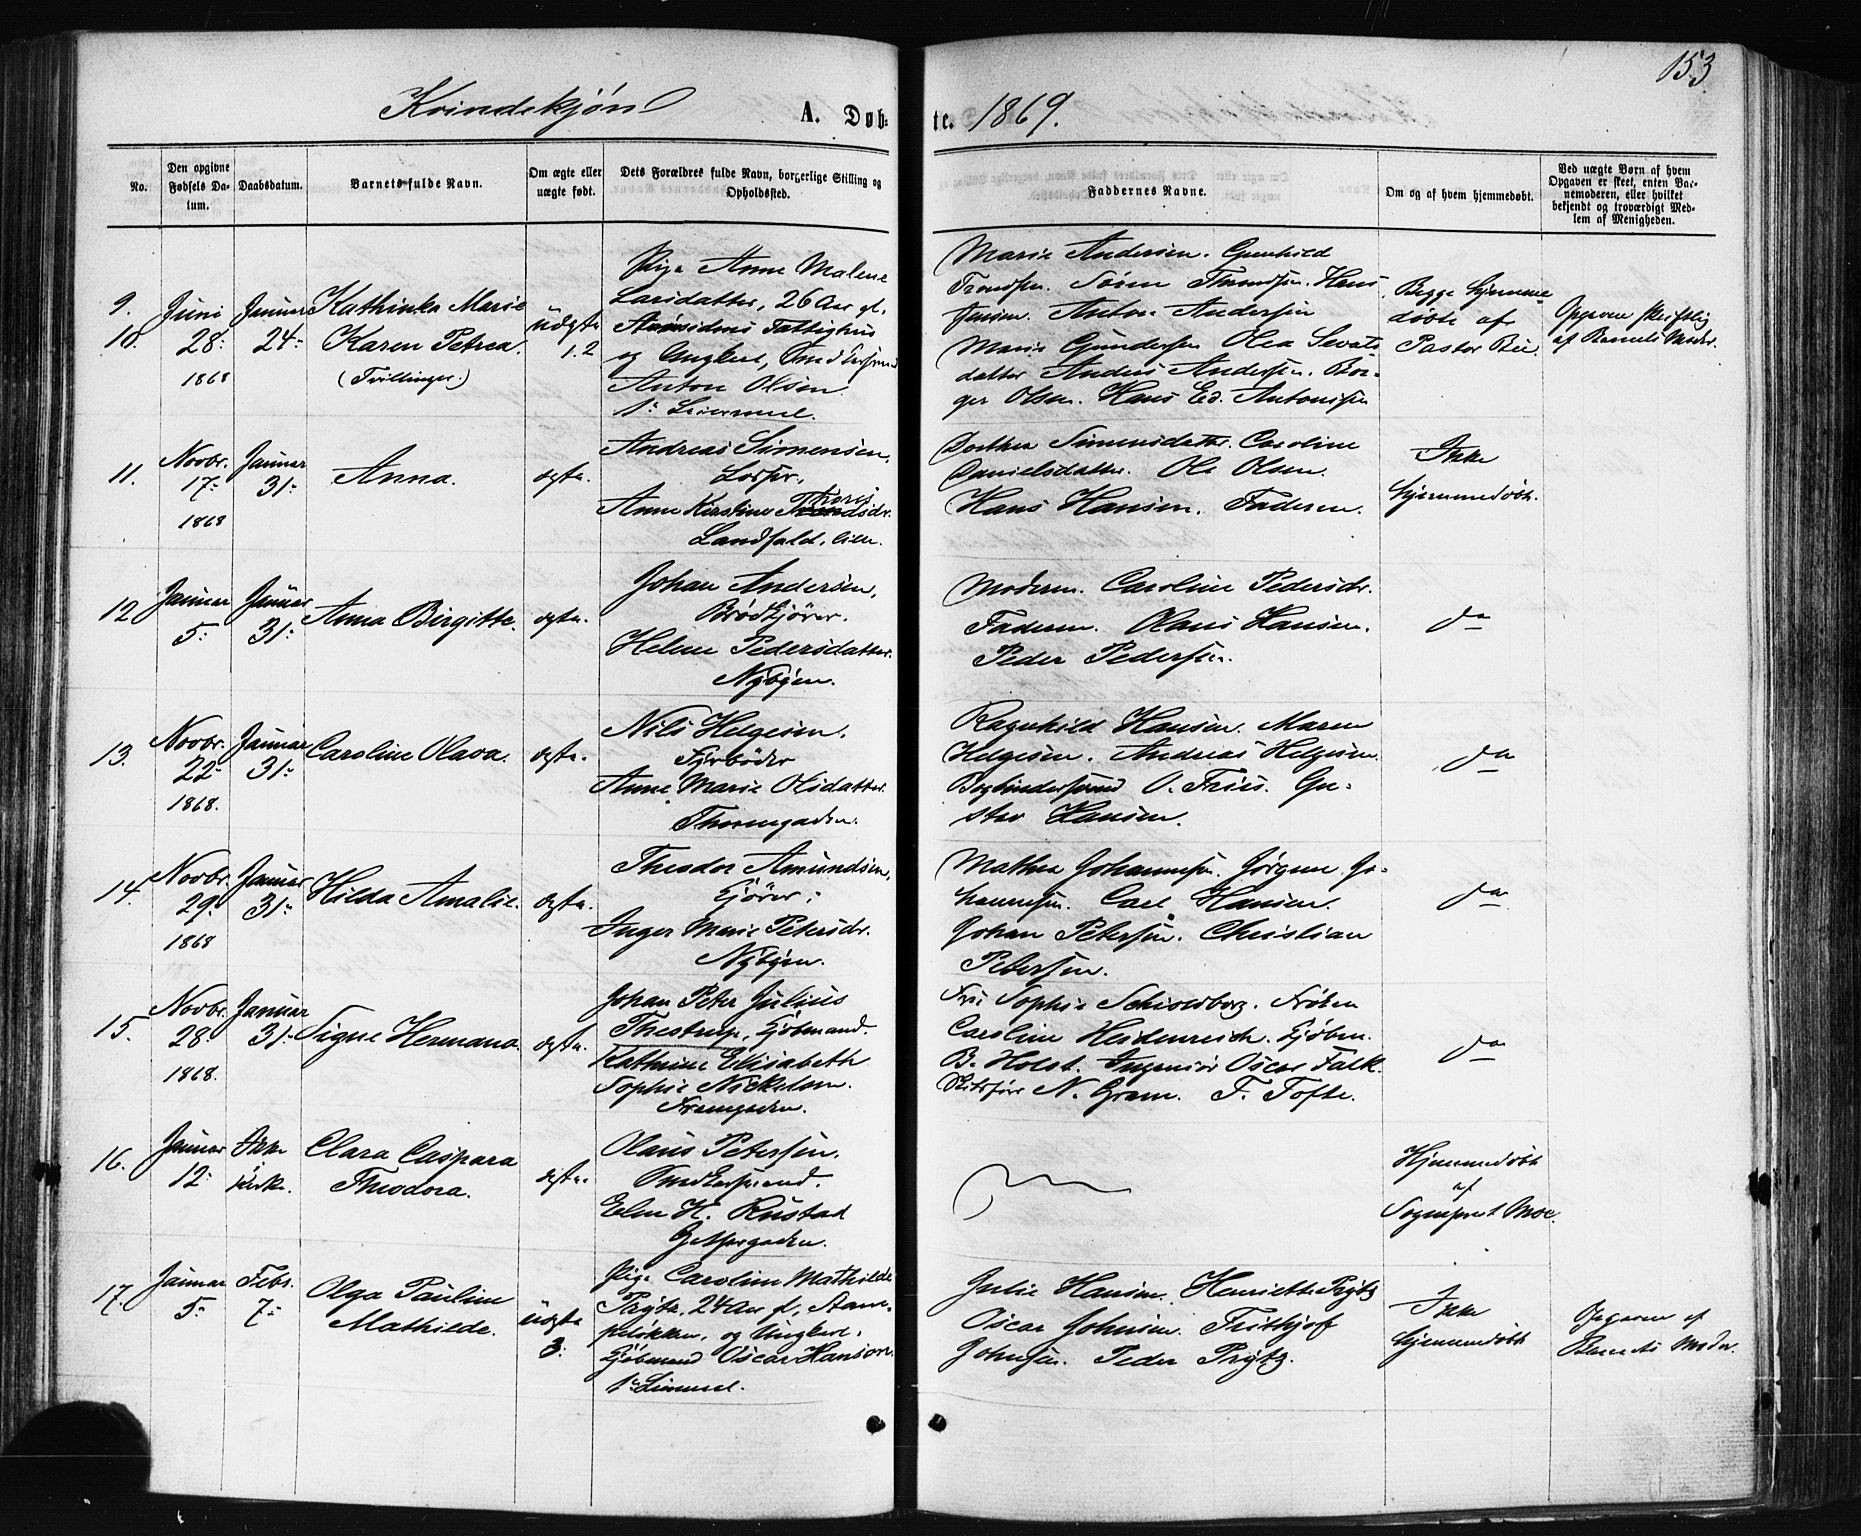 153
Kvindekjøn A. Døb- te. 1869.
No.
Den opgivne Fødsels Da- tum.
Daabsdatum.
Barnets fulde Navn.
Om ægte eller uægte født.
Dets Forældres fulde Navn, borgerlige Stilling og Opholdssted.
Faddernes Navne.
Om og af hvem hjemmedøbt.
Ved uægte Børn af hvem Opgaven er skeet, enten Bar- nemoderen, eller hvilket bekjendt og troværdigt Med- lem af Menigheden.
9.
10.
Juni
28:
1868
Januar
24:
Kathinka Marie
Karen Petrea.
(Tvillinger.)
uægte
1.2
Pige Anne Malene
Larsdatter, 26 Aar gl.
og Ungkarl,
Anton Olsen
Marie Andersen. Gunhild
Trondsen. Søren Trondsen. Hans
Jensen. Anton Andersen
Marie Gundersen Olea Sevats
datter Anders Andersen. Bør-
ger Olsen. Hans Ed. Antonisen
Begge hjemme
døbte af
Pastor Bu
Opgaven skriftlig
af Barnets Moder.
11.
Novbr.
17:
1868
Januar
31:
Anna.
ægte.
Andreas Simensen,
Anne Kirstine Thoris Trondsdr.
Landfald,
Dorthea Simensdatter. Caroline
Danielsdatter. Ole Olsen.
Hans Hansen. Faderen.
Ikke
hjemmedøbt.
12
Januar
5:
Januar
31:
Anna Birgitte.
ægte.
Johan Andersen,
Brødkjører.
Helene Pedersdatter.
Nybyen.
Moderen. Caroline Pedersdr.
Faderen. Olaus Hansen.
Peder Pedersen.
do
13.
Novbr.
22:
1868.
Januar
31:
Caroline Olava.
ægte.
Nils Helgesen,
Fyrbøder
Anne Marie Olsdatter.
Thornegaden.
Ragnhild Hansen. Maren
Helgesen. Andreas Helgesen.
Bogbindersvend O. Friis. Gu-
stav Hansen.
do
14.
Novbr.
29:
1868
Januar
31:
Hilda Amalie.
ægte.
Theodor Amundsen,
Kjører;
Inger Marie Petersdr.
Nybyen.
Mathea Johannesen. Jørgine Jo-
hannesen. Carl Hansen.
Johan Petersen. Christian
Petersen.
do
15.
Novbr.
28:
1868.
Januar
31:
Signe Hermana.
ægte.
Johan Peter Julius
Thestrup, Kjøbmand.
Kathrine Elisabeth
Sophie Nickelsen.
Fru Sophie Schioldborg. Frøken
Caroline Heidenreich. Kjøbm.
B. Holst. Ingeniør Oscar Falk.
N. Gram. F. Tofte.
do
16.
Januar
12:
Ikke
kirke.
Clara Caspara
Theodora.
ægte.
Olaus Petersen.
Smedesvend.
Elen H. Rustad
Hjemmedøbt
af
Sognepræst Moe.
17.
Januar
5:
Febr.
7:
Olga Pauline
Mathilde.
uægte
3:
Pige Caroline Mathilde
Prytz, 24 Aar gl,
og Ungkarl,
Kjøbmand Oscar Hanson.
Julie Hansen. Henriette Prytz
Oscar Johnsen. Frithjof
Johnsen. Peder Prytz.
Ikke
hjemmedøbt
Opgaven af
Barnets Moder.